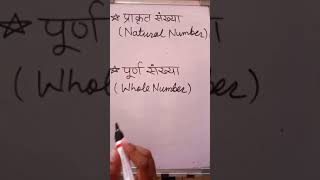 ☆ प्राकृत संख्या
(Natural Number)
☆ पूर्ण संख्या
(Whole Number)